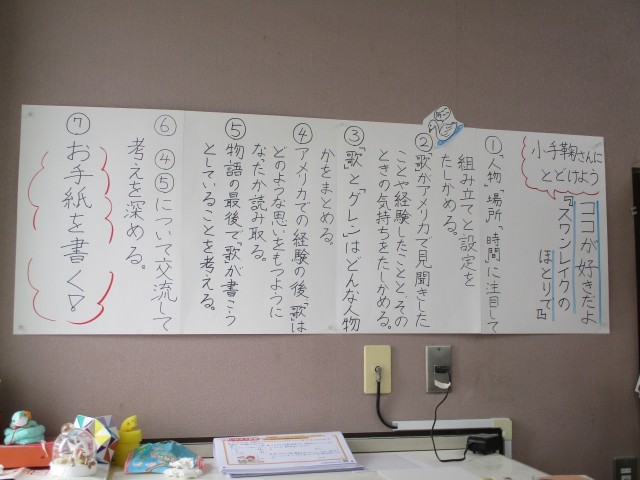 小手鞠さんに
とどけよう
ココが好きだよ
『スワンレイクの
ほとりで』
① 「人物」「場所」「時間」に注目して
組み立てと設定を
たしかめる。
② 歌がアメリカで見聞きした
ことや経験したことと、その
ときの気持ちをたしかめる。
③ 「歌」と「グレン」はどんな人物
かをまとめる。
④ アメリカでの経験の後、「歌」は
どのような思いをもつように
なったか読み取る。
⑤ 物語の最後で「歌」が書こう
としていることを考える。
⑥ ④⑤について交流して
考えを深める。
⑦ お手紙を書く!